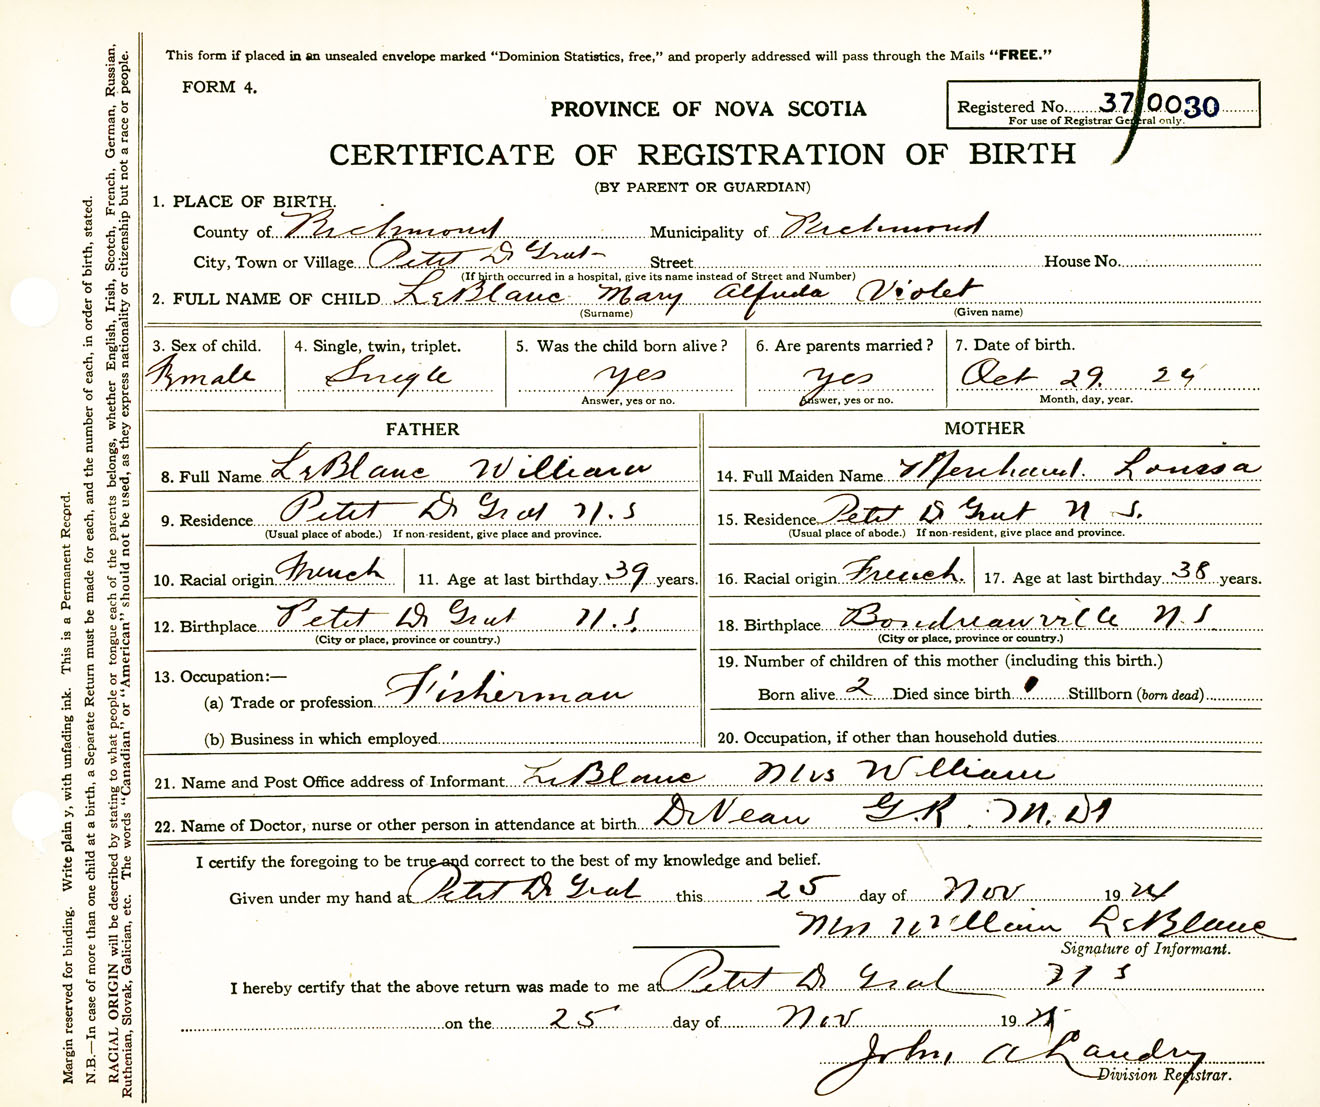 This form if placed in an unsealed envelope marked “Dominion Statistics, free,” and properly addressed will pass through the Mails “FREE.”
FORM 4.
PROVINCE OF NOVA SCOTIA
Registered No. 37/0030
For use of Registrar General only.
CERTIFICATE OF REGISTRATION OF BIRTH
(BY PARENT OR GUARDIAN)
1. PLACE OF BIRTH.
County of Richmond Municipality of Richmond
City, Town or Village Petit D Grat Street House No.
(If birth occurred in a hospital, give its name instead of Street and Number)
2. FULL NAME OF CHILD LeBlanc Mary Alfreda Violet
(Surname) (Given name)
3. Sex of child. 4. Single, twin, triplet. 5. Was the child born alive? 6. Are parents married? 7. Date of birth.
Female Single yes yes Oct 29. 24
Answer, yes or no. Answer, yes or no. Month, day, year.
FATHER MOTHER
8. Full Name LeBlanc William 14. Full Maiden Name Merchand. Loussa
9. Residence Petit D Grat N.S 15. Residence Petit D Grat N S.
(Usual place of abode.) If non-resident, give place and province. (Usual place of abode.) If non-resident, give place and province.
10. Racial origin French 11. Age at last birthday 39 years. 16. Racial origin French. 17. Age at last birthday 38 years.
12. Birthplace Petit D Grat N.S. 18. Birthplace Boudreauville N.S
(City or place, province or country.) (City or place, province or country.)
13. Occupation:— 19. Number of children of this mother (including this birth.)
(a) Trade or profession Fisherman Born alive 2 Died since birth Stillborn (born dead)
(b) Business in which employed 20. Occupation, if other than household duties
21. Name and Post Office address of Informant LeBlanc Mrs William
22. Name of Doctor, nurse or other person in attendance at birth DeVeau G.R. M.D
I certify the foregoing to be true and correct to the best of my knowledge and belief.
Given under my hand at Petit D Grat this 25 day of Nov 1924
Mrs William LeBlanc
Signature of Informant.
I hereby certify that the above return was made to me at Petit D Grat N S
on the 25 day of Nov 19
John A Landry
Division Registrar.
Margin reserved for binding. Write plain y, with unfading ink. This is a Permanent Record.
N.B.—In case of more than one child at a birth, a Separate Return must be made for each, and the number of each, in order of birth, stated.
RACIAL ORIGIN will be described by stating to what people or tongue each of the parents belongs, whether English, Irish, Scotch, French, German, Russian,
Ruthenian, Slovak, Galician, etc. The words “Canadian” or “American” should not be used, as they express nationality or citizenship but not a race or people.